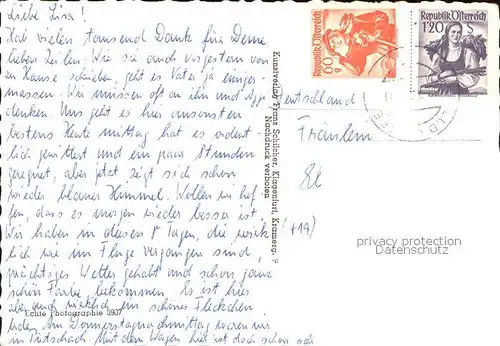 Liebe Lisa!
Hab vielen tausend Dank für Deine
lieben Zeilen. Wie sie auch vorgestern von
zu Hause schrieben, geht es Vater ja einiger-
massen. Wir müssen oft an ihn und
denken. Uns geht es hier ansonsten
bestens. Heute mittag hat es ordent-
lich gewittert und ein paar Stunden
geregnet, aber jetzt zeigt sich schon
wieder blauer Himmel. Wollen wir hof-
fen, dass es morgen wieder besser ist.
Wir haben in diesen 8 Tagen, die wirk-
lich wie im Fluge vergangen sind,
prächtiges Wetter gehabt und schon ganz
schön Farbe bekommen. Es ist hier
aber auch wirklich ein schönes Fleckchen
Echte Photographie 5907
Erden. Am Donnerstagnachmittag waren wir
in Pörtschach. Mit dem Wagen hier ist doch schon
Kunstverlag Franz Schilcher, Klagenfurt, Kranzerg. 9
Nachdruck verboten
Republik Österreich
60 g
Republik Österreich
1'20 S
Deutschland!
Fräulein
El
(+19)
privacy protection
Datenschutz